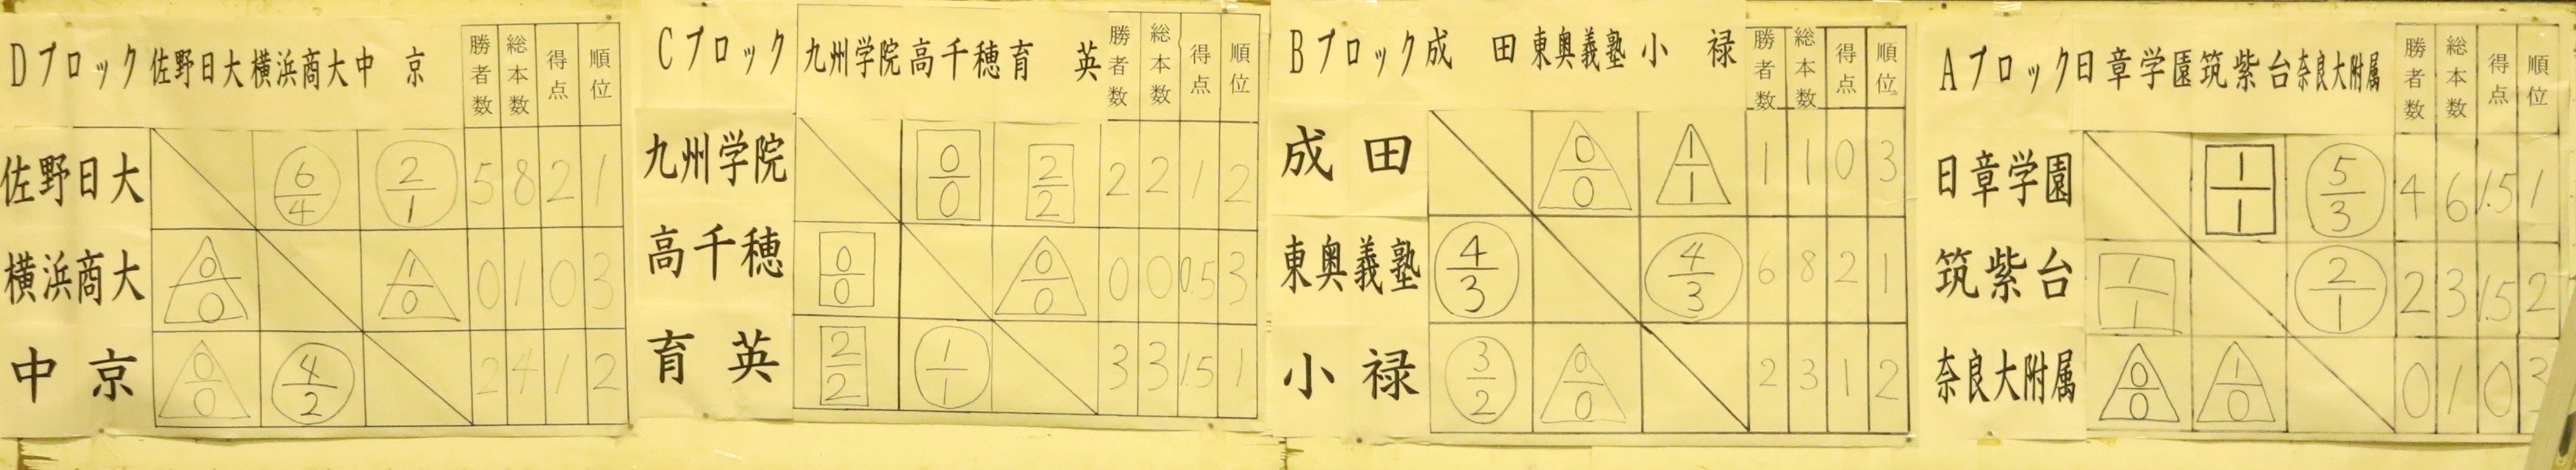 Dブロック 佐野日大 横浜商大 中京 勝者数 総本数 得点 順位
佐野日大 6/4 2/1 5 8 2 1
横浜商大 0/0 1/0 0 1 0 3
中京 0/0 4/2 2 4 1 2
Cブロック 九州学院 高千穂 育英 勝者数 総本数 得点 順位
九州学院 0/0 2/2 2 2 1 2
高千穂 0/0 0/0 0 0 0.5 3
育英 2/2 1/1 3 3 1.5 1
Bブロック 成田 東奥義塾 小禄 勝者数 総本数 得点 順位
成田 0/0 1/1 1 1 0 3
東奥義塾 4/3 4/3 6 8 2 1
小禄 3/2 0/0 2 3 1 2
Aブロック 日章学園 筑紫台 奈良大附属 勝者数 総本数 得点 順位
日章学園 1/1 5/3 4 6 1.5 1
筑紫台 1/1 2/1 2 3 1.5 2
奈良大附属 0/0 1/0 0 1 0 3